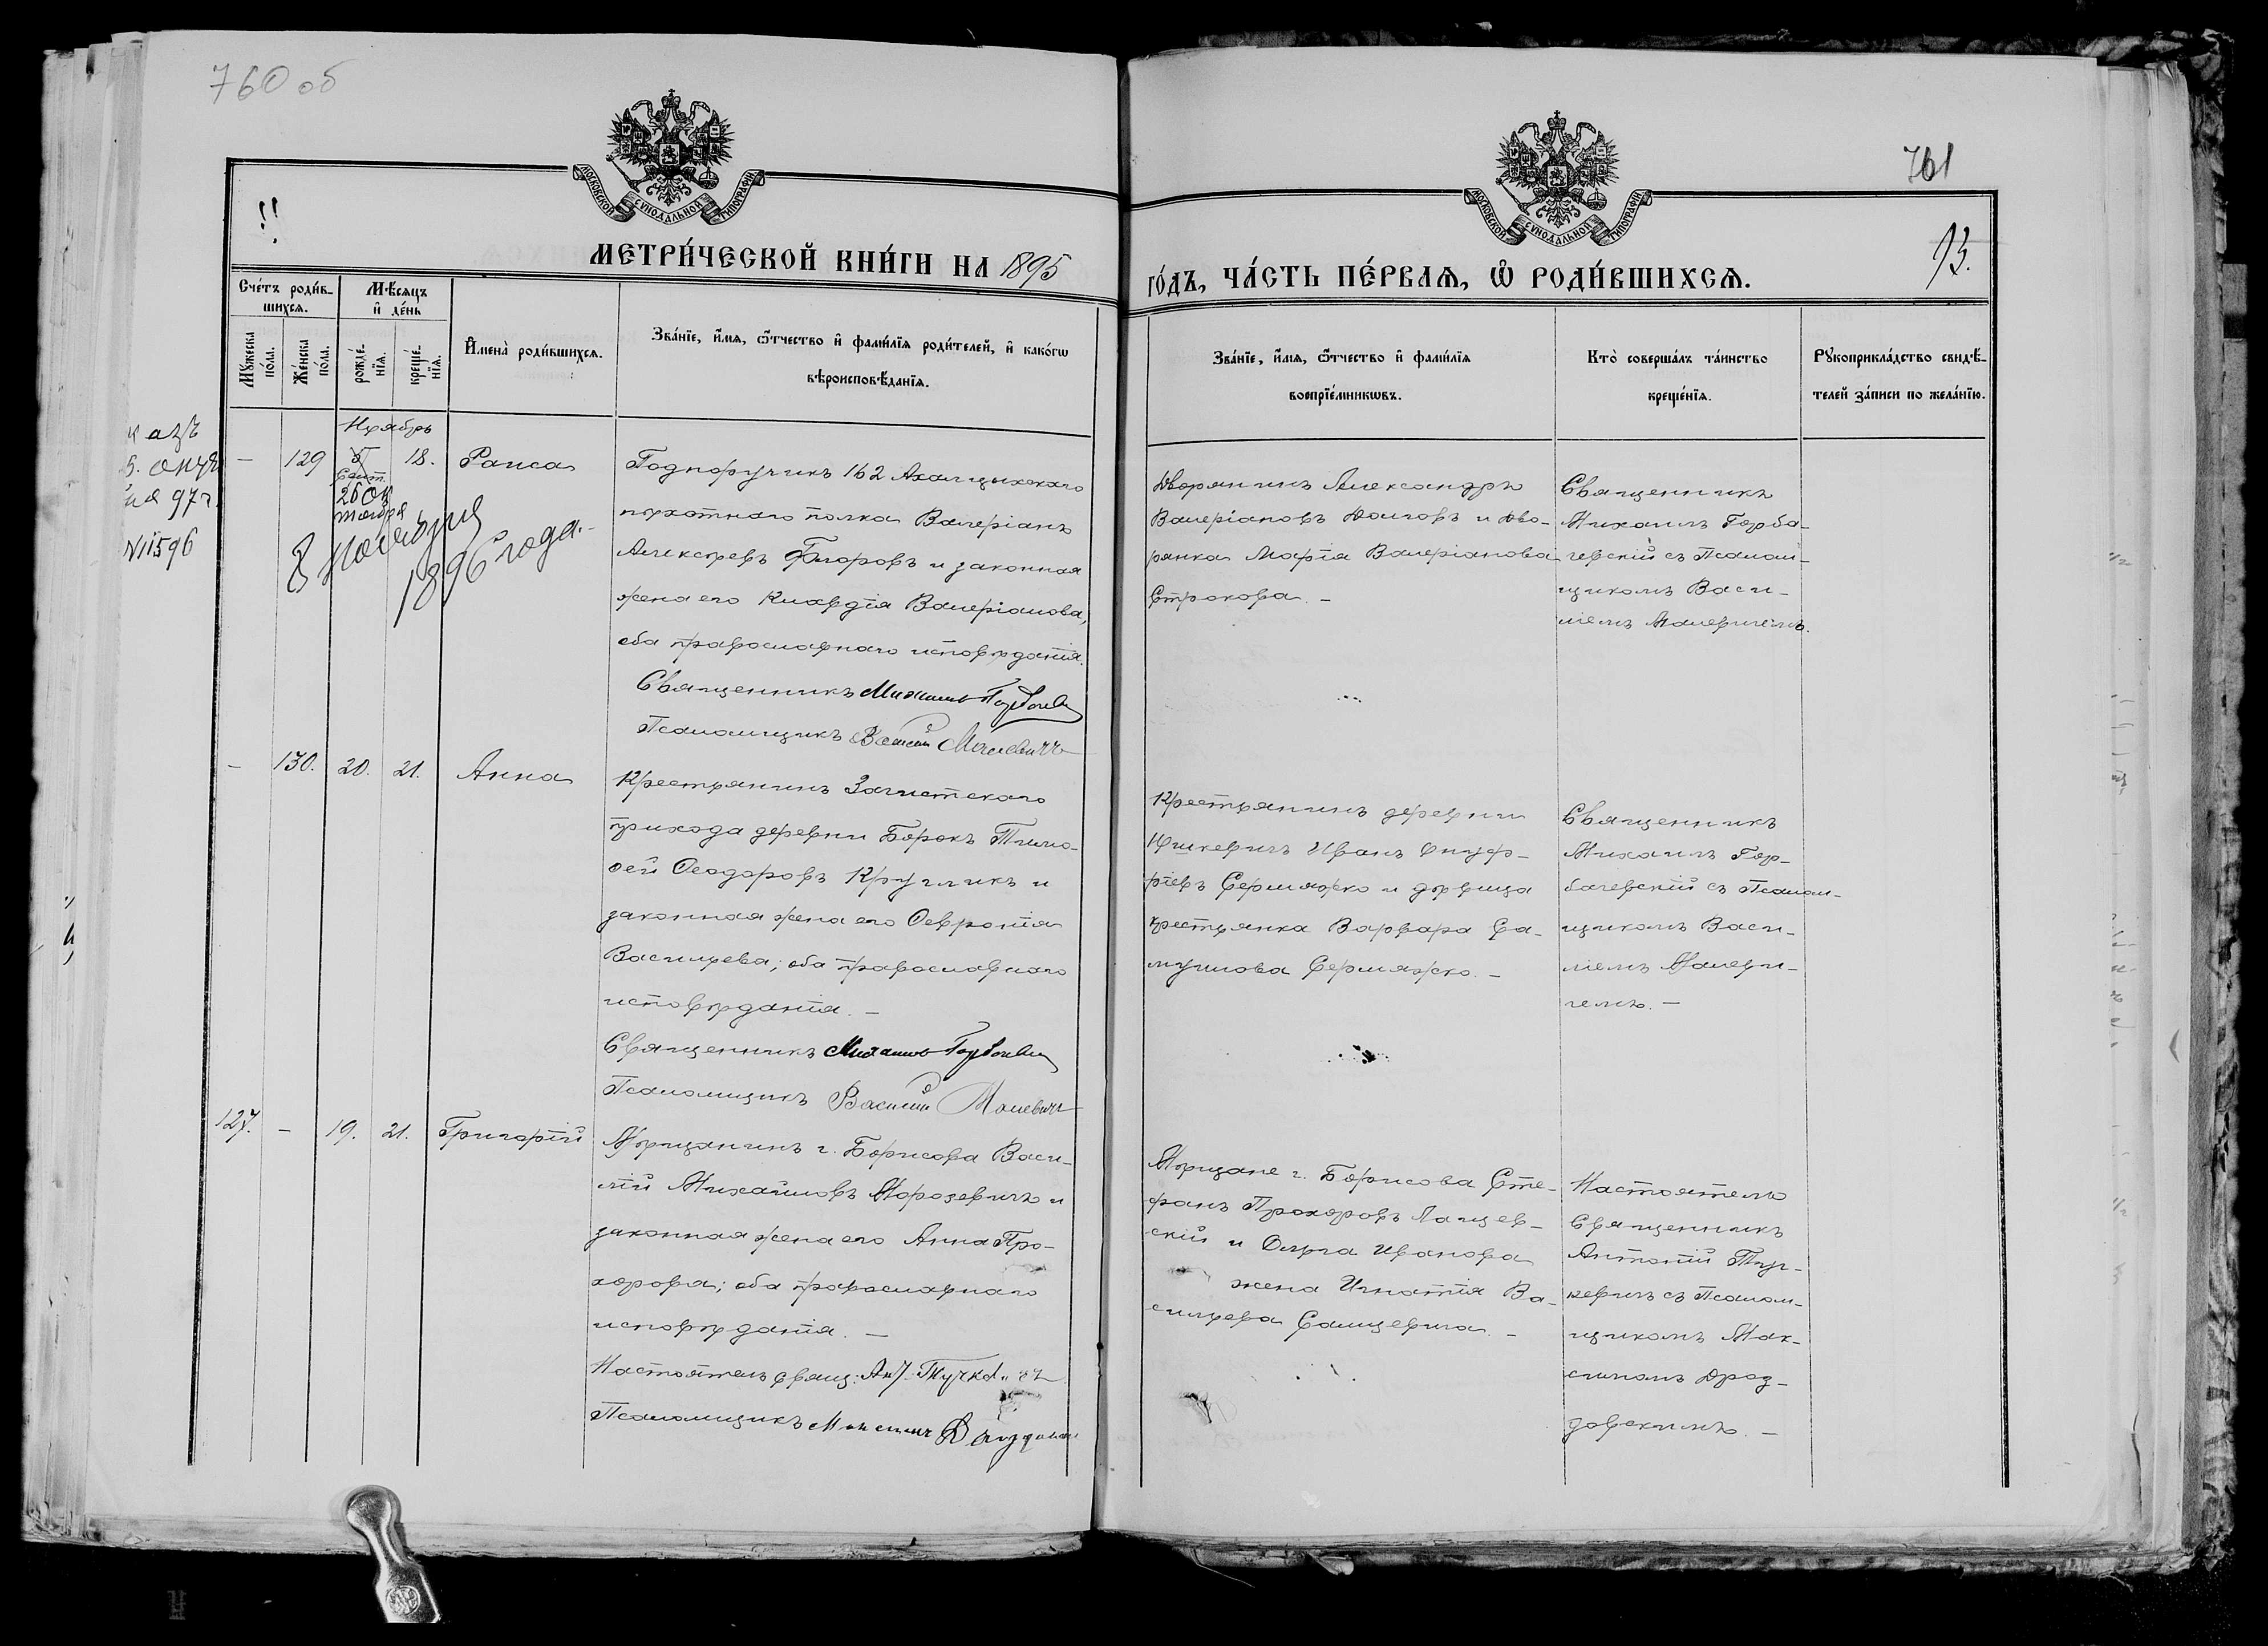 760 об
МОСКОВСКОЙ СѴНОДАЛЬНОЙ ТИПОГРАФІИ
!!
МЕТРИ́ЧЕСКОЙ КНИ́ГИ НА 1895
Сче́тъ роди́в-
шихсѧ.
Мѣ́сѧцъ
и҆ де́нь
Мꙋ́жеска
по́ла.
Же́нска
по́ла.
рожде́-
нїѧ.
креще́-
нїѧ.
И҆мена̀ роди́вшихсѧ.
Зва́нїе, и҆́мѧ, ѻ҆́тчество и҆ фами́лїѧ роди́телей, и҆ како́гѡ
вѣроисповѣ́данїѧ.
Ноябрь
— 129 18. Раиса
26 Ок
тября
8 Ноября
1896 года.
97 г.
№ 11596
Подпоручикъ 162 Ахалцыхскаго
пѣхотнаго полка Валеріанъ
Алексѣевъ и законная
жена его Клавдія Валеріанова,
оба православнаго исповѣданія.
Священникъ Михаилъ Горбачевскій
Псаломщикъ Василій Малевичъ
— 130. 20. 21. Анна
Крестьянинъ Зачистскаго
прихода деревни Борокъ Тимо-
ѳей Ѳеодоровъ Кругликъ и
законная жена его Ѳевронія
Васильева; оба православнаго
исповѣданія. —
Священникъ Михаилъ Горбачевскій
Псаломщикъ Василій Малевичъ
127. — 19. 21. Григорій
Мѣщанинъ г. Борисова Васи-
лій Михайловъ Морозевичъ и
законная жена его Анна Про-
хорова; оба православнаго
исповѣданія. —
Настоятель свящ: Ант. Тучкевичъ
Псаломщикъ Максимъ Дроздовскій
761
МОСКОВСКОЙ СѴНОДАЛЬНОЙ ТИПОГРАФІИ
93.
ГО́ДЪ, ЧА́СТЬ ПЕ́РВАѦ, Ѡ҆ РОДИ́ВШИХСѦ.
Зва́нїе, и҆́мѧ, ѻ҆́тчество и҆ фами́лїѧ
воспрїе́мникѡвъ.
Кто̀ соверша́лъ та́инство
креще́нїѧ.
Рꙋкоприкла́дство свидѣ́-
телей за́писи по жела́нїю.
Дворянинъ Александръ
Валеріановъ Долговъ и дво-
рянка Марія Валеріанова
Строкова. —
Священникъ
Михаилъ Горба-
чевскій съ Псалом-
щикомъ Васи-
ліемъ Малевичемъ.
Крестьянинъ деревни
Ицкевичъ Иванъ Онуф-
ріевъ Сермяжко и дѣвица
крестьянка Варвара Са-
муилова Сермяжко. —
Священникъ
Михаилъ Гор-
бачевскій съ Псалом-
щикомъ Васи-
ліемъ Малеви-
чемъ. —
Мѣщане г. Борисова Сте-
фанъ Прохоровъ Лащев-
скій и Ольга Иванова
жена Игнатія Ва-
сильева Салицевича. —
Настоятель
Священникъ
Антоній Туч-
кевичъ съ Псалом-
щикомъ Мак-
симомъ Дроз-
довскимъ. —